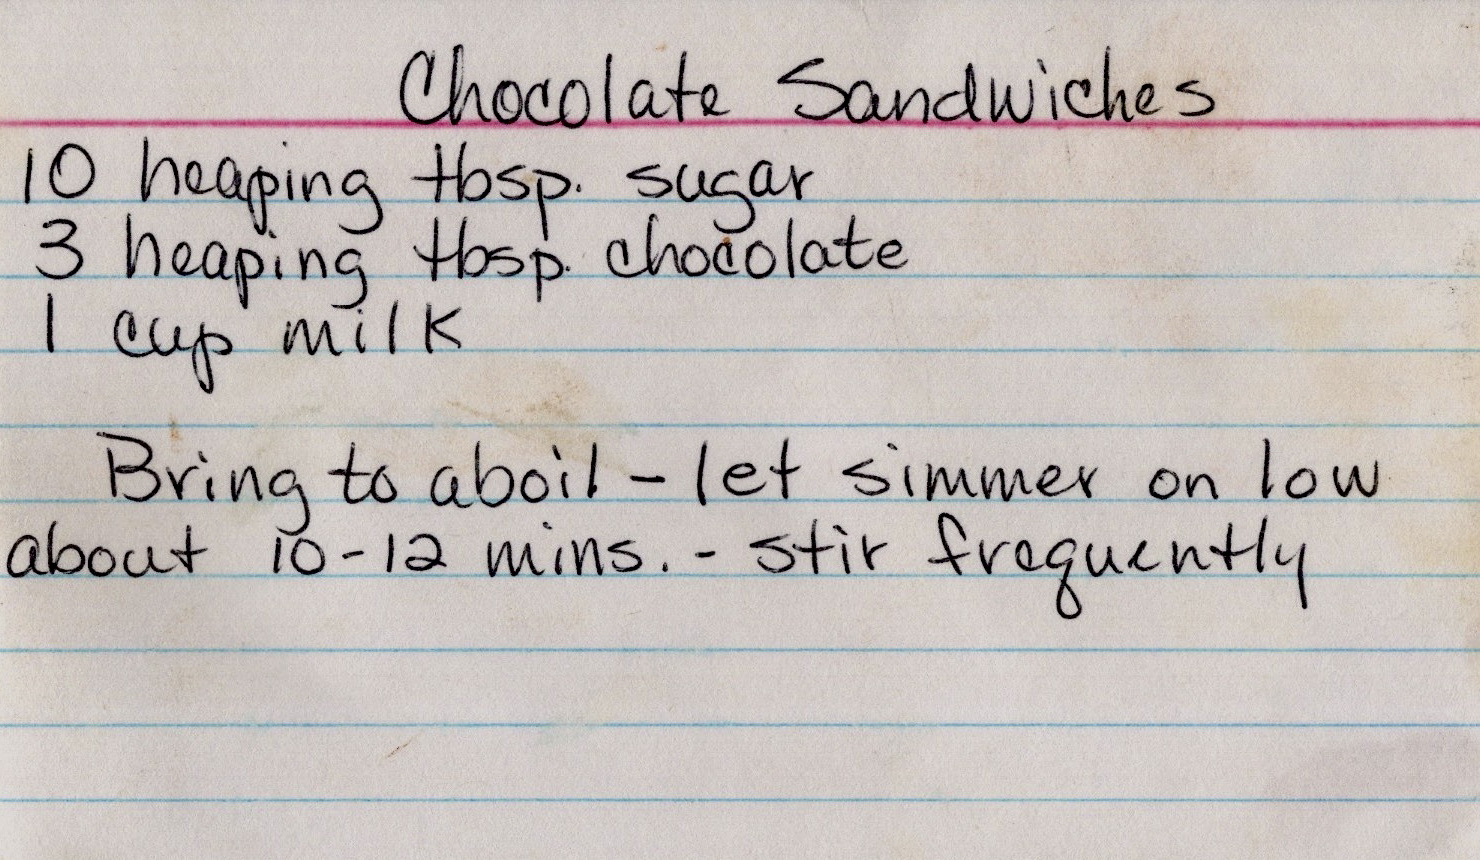 Chocolate Sandwiches
10 heaping tbsp. sugar
3 heaping tbsp. chocolate
1 cup milk
Bring to aboil - let simmer on low
about 10-12 mins. - stir frequently